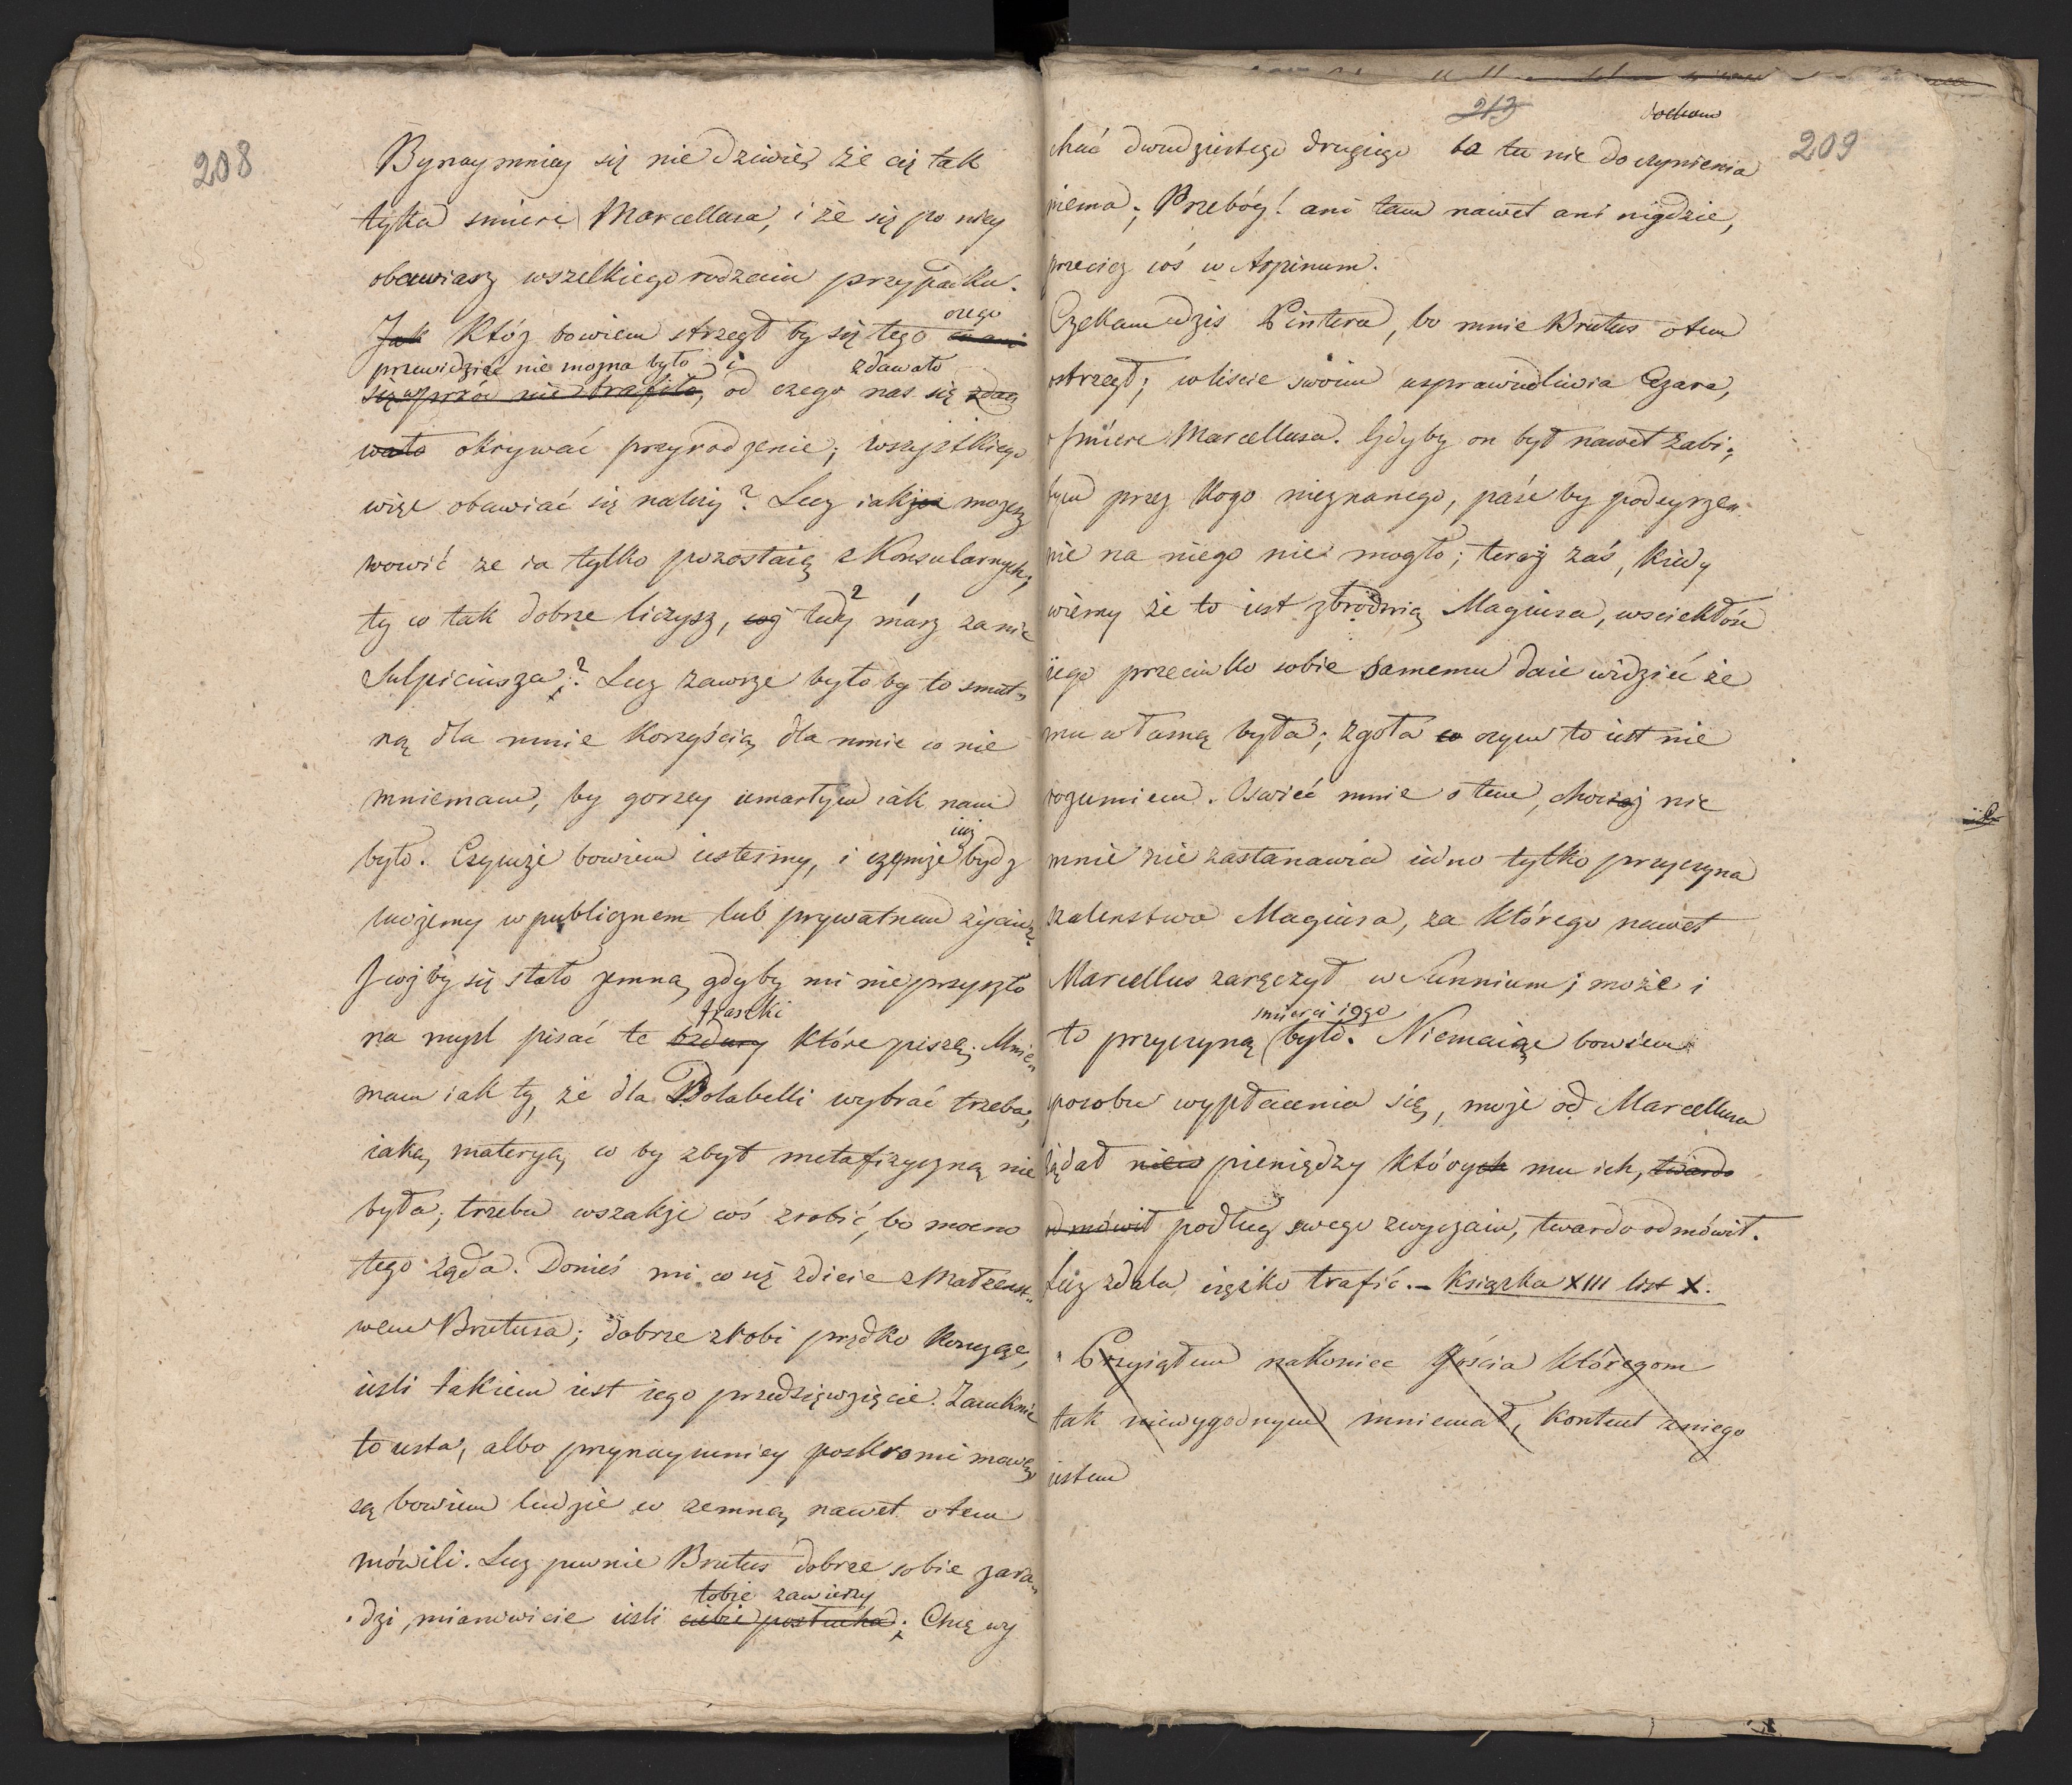 208
Bynaymniey się nie dziwię że cię tak
tyka smierć Marcellusa, i że się po niey
obawiasz wszelkiego rodzaiu przypadku.
czego
Jak Któż bowiem strzegł by się tego
przewidzieć nie można było i zdawało
się wprzód nie trafiło, od czego nas się zdaą
wało okrywać przyrodzenie; wszystkiego
więc obawiać się należy? Lecz iak możesz
mówić że ia tylko pozostaię z Konsularnych,
ty co tak dobrze liczysz, cóż tedy masz za nic
Sulpiciusza? Lecz zawsze było by to smut„
ną dla mnie korzyścią, dla mnie co nie
mniemam, by gorzey umarłym iak nam
było. Czymże bowiem iesteśmy, i czymże iuż bydz
możemy w publicznem lub prywatnem życiu?
I cóż by się stało zemną, gdyby mi nie przyszło
fraszki
na mysl pisać te bzdury które piszę; Mnie„
mam iak ty, że dla Dolabelli wybrać trzeba,
iaką materyą co by zbyt metafizyczną nie
była; trzeba wszakże coś zrobić, bo mocno
tego żąda. Donieś mi co się zdieie z Małżenst„
wem Brutusa; dobrze zrobi prędko kończąc,
iesli takiem iest iego przedsięwzięcie. Zamknie
to usta, albo przynaymniey poskromi mowę,
są bowiem ludzie co zemną nawet o tem
mówili. Lecz pewnie Brutus dobrze sobie zara„
tobie zawierzy
dzi, mianowicie iesli ciebie posłucha; Chcę wy
213
209
iechać dwudziestego drugiego bo tu nic do czynienia
niema; Przebóg! ani tam nawet ani nigdzie,
przecież coś w Arpinum.
Czekam dziś Lintera, bo mnie Brutus o tem
ostrzegł; w liscie swoim usprawiedliwia Cezara,
o smierć Marcellusa. Gdyby on był nawet zabi„
tym przez kogo nieznanego, paść by podeyrze„
nie na niego nie mogło; teraz zaś, kiedy
wiemy że to iest zbrodnią Magiusa, wsciekłość
iego przeciwko sobie samemu daie widzieć że
mu własną była; zgoła co czym to iest nie
rozumiem. Oswieć mnie o tem, chociaż nic
mnie nie zastanawia iedno tylko przyczyna
szalenstwa Magiusa, za którego nawet
Marcellus zaręczył w Sunnium; może i
smierci iego
to przyczyną było. Niemaiąc bowiem
sposobu wypłacenia się, może od Marcellusa
żądał pieniędzy których mu ich, twardo
odmówił podług swego zwyczaiu, twardo odmówił.
Lecz zdala, ciężko trafić. – Książka XIII list X.
Przyiąłem nakoniec Gościa któregom
tak niewygodnym mniemał, kontent z niego
iestem